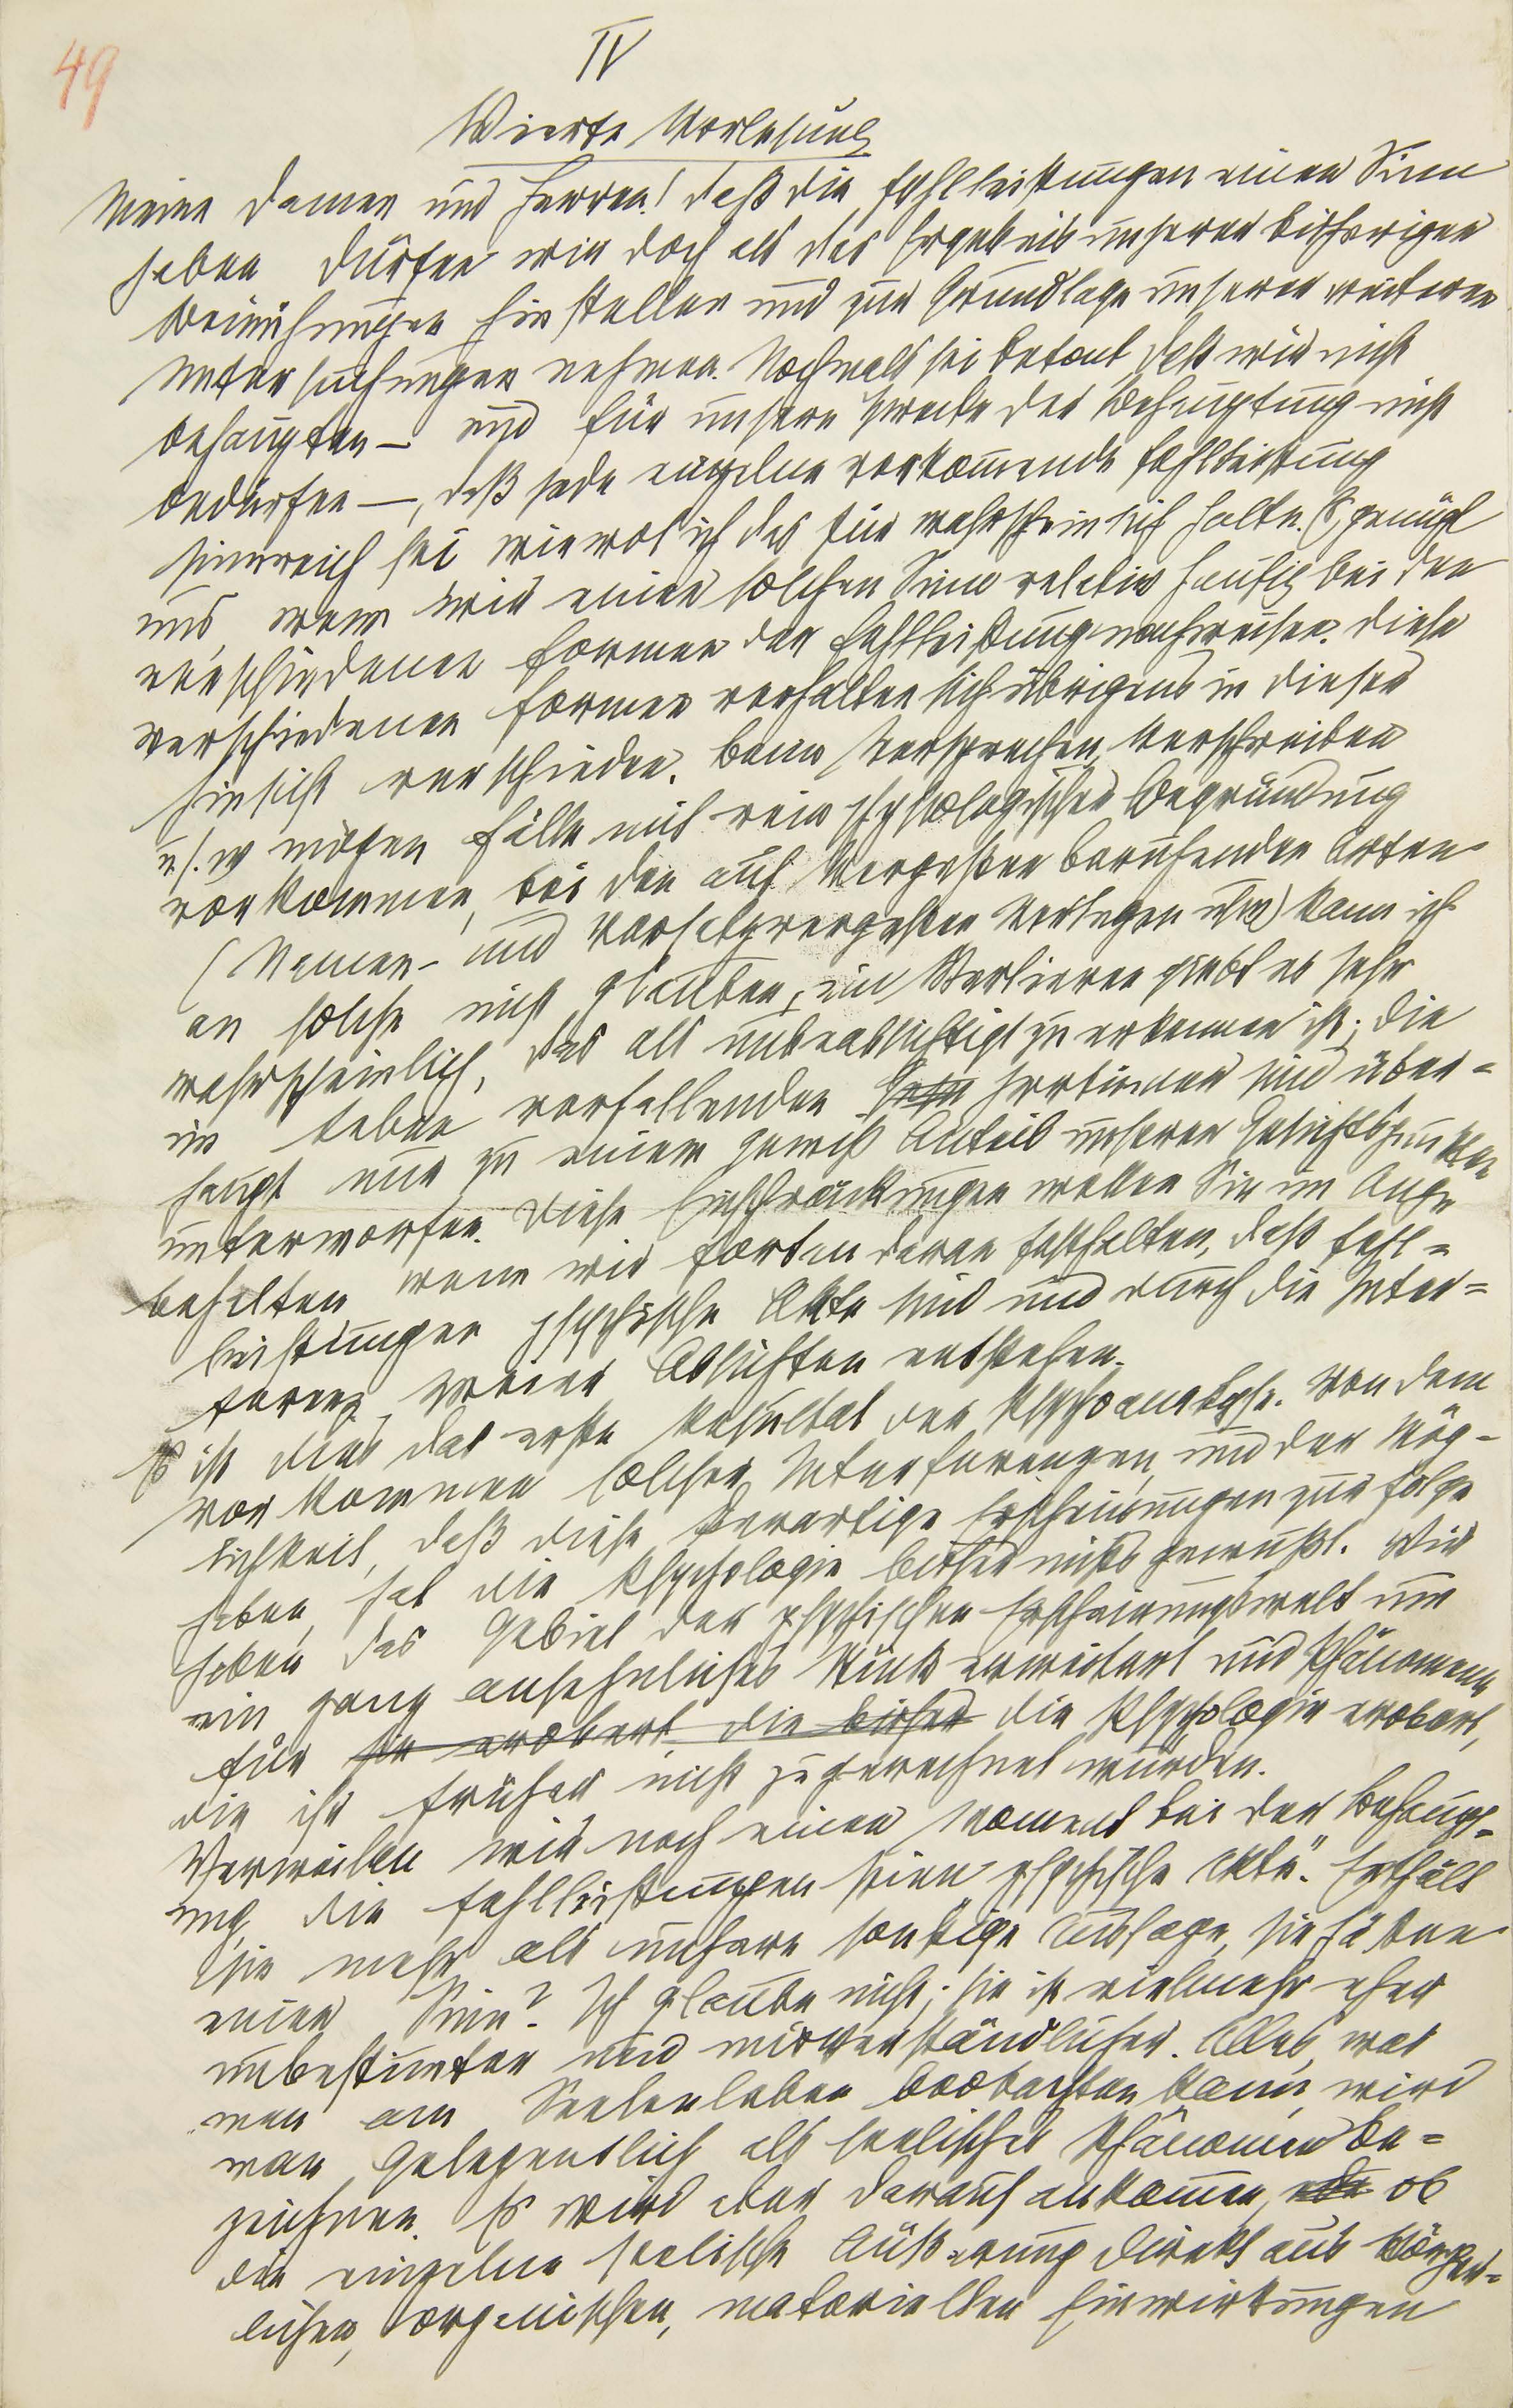 49
IV
Vierte Vorlesung
Meine Damen und Herren! Daß die Fehlleistungen einen Sinn
haben dürfen wir doch als das Ergebnis unserer bisherigen
Bemühungen hinstellen und zur Grundlage unserer weiteren
Untersuchungen nehmen. Nochmals sei betont daß wir nicht
behaupten — und für unsere Zwecke der Behauptung nicht
bedürfen —, daß jede einzelne vorkommende Fehlleistung
sinnreich sei wiewol ich das für wahrscheinlich halte. Es genügt
uns wenn wir einen solchen Sinn relativ häufig bei den
verschiedenen Formen der Fehlleistung nachweisen. Diese
verschiedenen Formen verhalten sich übrigens in dieser
Hinsicht verschieden. Beim Versprechen, Verschreiben
u.s.w mögen Fälle mit rein physiologischer Begründung
vorkommen, bei den auf Vergeßen beruhenden Arten
(Namen- und Vorsatzvergeßen Verlegen usw) kann ich
an solche nicht glauben, ein Verlieren giebt es sehr
wahrscheinlich, das als unbeabsichtigt zu erkennen ist; die
im Leben vorfallenden Irrtümer sind über=
haupt nur zu einem gewiß Anteil unseren Gesichtspunkten
unterworfen. Diese Einschränkungen wollen Sie im Auge
behalten wenn wir fortan daran festhalten, daß Fehl=
leistungen psychische Akte sind und durch die Inter=
ferenz zweier Absichten entstehen.
Es ist dies das erste Resultat der Psychoanalyse. Von dem
Vorkommen solcher Interferenzen und der Mög-
lichkeit, daß diese derartige Erscheinungen zur Folge
haben, hat die Psychologie bisher nichts gewußt. Wir
haben das Gebiet der psychischen Erscheinungswelt um
ein ganz ansehnliches Stück erweitert und Phänomene
für sie erobert, die bisher die Psychologie erobert,
die ihr früher nicht zugerechnet wurden.
Verweilen wir noch einen Moment bei der Behaupt=
ung, die Fehlleistungen seien „psychische Akte“. Enthält
sie mehr als unsere sonstige Aussage, sie hätten
einen Sinn? Ich glaube nicht; sie ist vielmehr eher
unbestimter und misverständlicher. Alles, was
man am Seelenleben beobachten kann, wird
man gelegentlich als seelisches Phänomen be=
zeichnen. Es wird aber darauf ankomen, ob
die einzelne seelische Äußerung direkt aus körper=
lichen, organischen, materiellen Einwirkungen